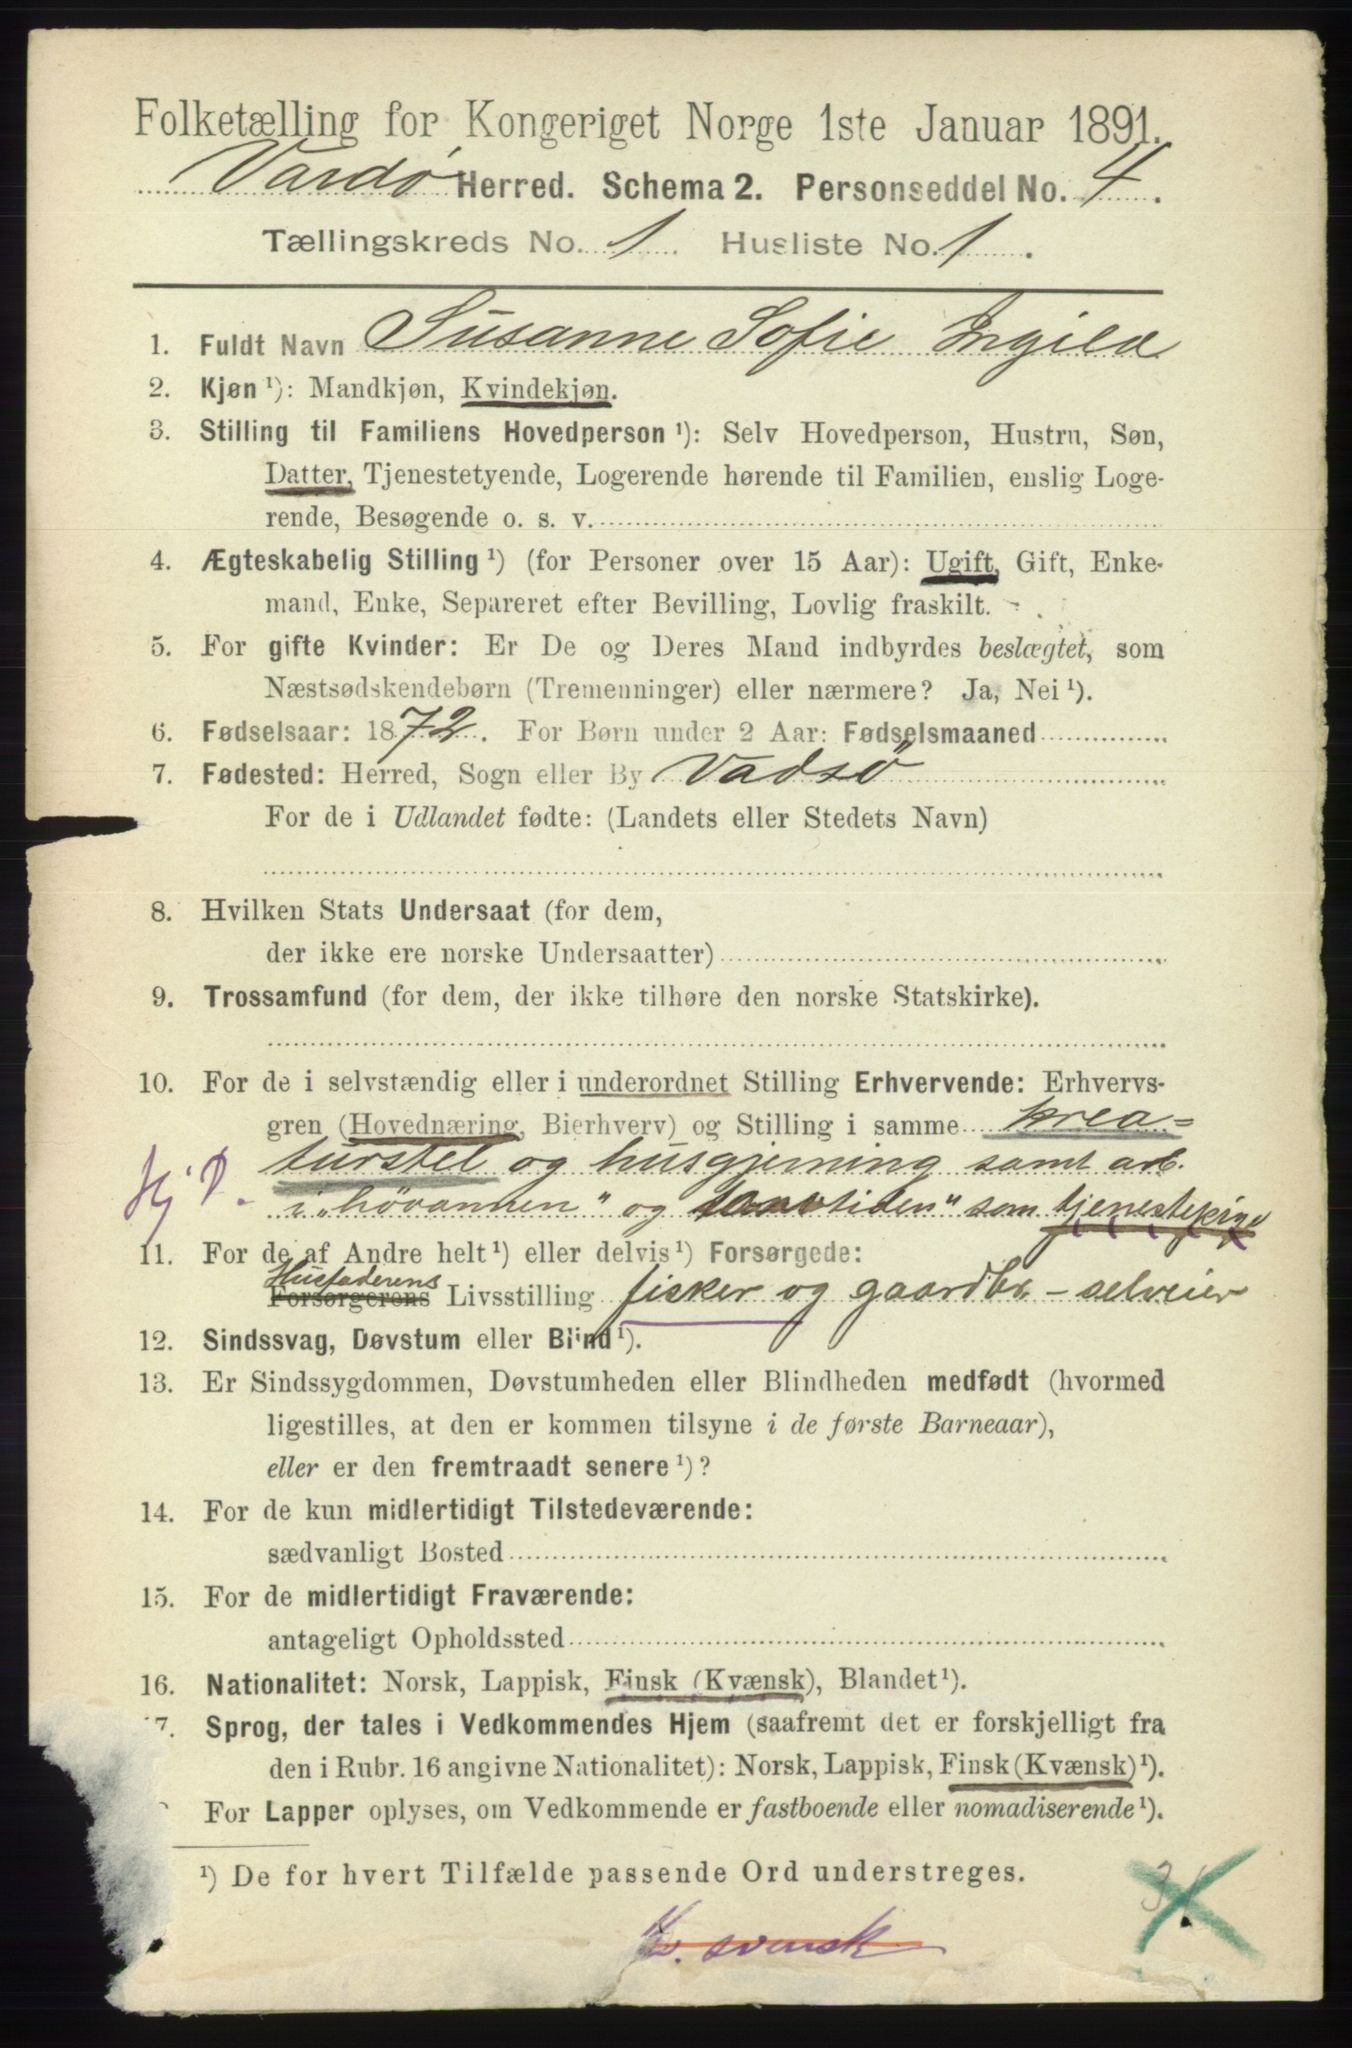 Folketælling for Kongeriget Norge 1ste Januar 1891.
Vardø Herred. Schema 2. Personseddel No. 4.
Tællingskreds No. 1. Husliste No. 1.
1. Fuldt Navn Susanne Sofie Ingild
2. Kjøn ¹): Mandkjøn, Kvindekjøn.
3. Stilling til Familiens Hovedperson ¹): Selv Hovedperson, Hustru, Søn,
Datter, Tjenestetyende, Logerende hørende til Familien, enslig Loge-
rende, Besøgende o. s. v.
4. Ægteskabelig Stilling ¹) (for Personer over 15 Aar): Ugift, Gift, Enke-
mand, Enke, Separeret efter Bevilling, Lovlig fraskilt.
5. For gifte Kvinder: Er De og Deres Mand indbyrdes beslægtet, som
Næstsødskendebørn (Tremenninger) eller nærmere? Ja, Nei ¹).
6. Fødselsaar: 1872. For Børn under 2 Aar: Fødselsmaaned
7. Fødested: Herred, Sogn eller By Vadsø
For de i Udlandet fødte: (Landets eller Stedets Navn)
8. Hvilken Stats Undersaat (for dem,
der ikke ere norske Undersaatter)
9. Trossamfund (for dem, der ikke tilhøre den norske Statskirke).
10. For de i selvstændig eller i underordnet Stilling Erhvervende: Erhvervs-
gren (Hovednæring, Bierhverv) og Stilling i samme krea-
Hj D. turstel og husgjerning samt arb.
i „høvannen" og tiden" som tjenestepige
11. For de af Andre helt ¹) eller delvis ¹) Forsørgede:
Husfaderens
Forsørgerens Livsstilling fisker og gaardbr - selveier
12. Sindssvag, Døvstum eller Blind ¹).
13. Er Sindssygdommen, Døvstumheden eller Blindheden medfødt (hvormed
ligestilles, at den er kommen tilsyne i de første Barneaar),
eller er den fremtraadt senere ¹)?
14. For de kun midlertidigt Tilstedeværende:
sædvanligt Bosted
15. For de midlertidigt Fraværende:
antageligt Opholdssted
16. Nationalitet: Norsk, Lappisk, Finsk (Kvænsk), Blandet ¹).
7. Sprog, der tales i Vedkommendes Hjem (saafremt det er forskjelligt fra
den i Rubr. 16 angivne Nationalitet): Norsk, Lappisk, Finsk (Kvænsk) ¹).
For Lapper oplyses, om Vedkommende er fastboende eller nomadiserende ¹).
¹) De for hvert Tilfælde passende Ord understreges.
svensk